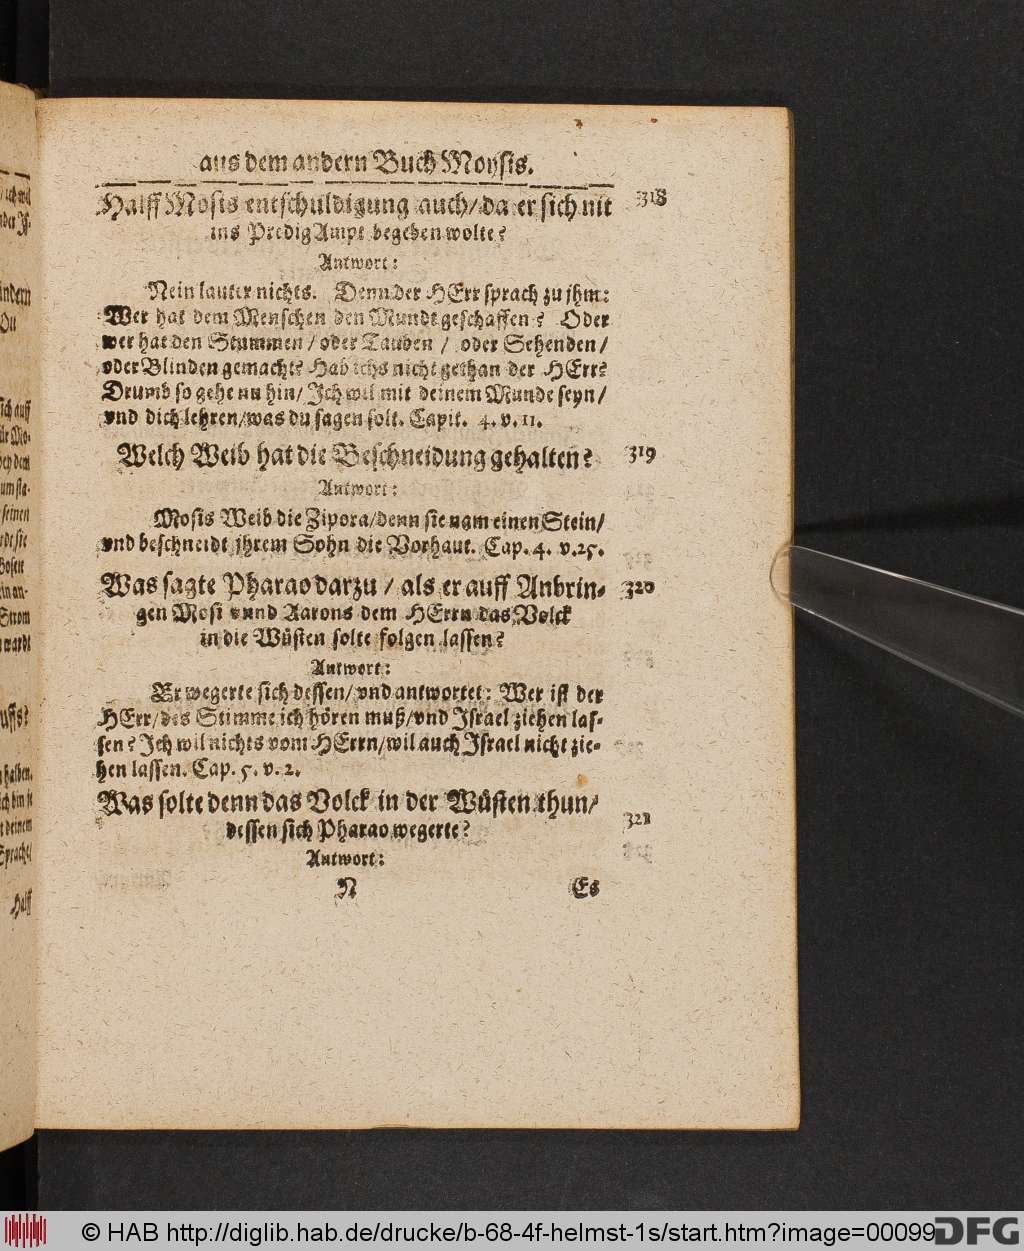 aus dem andern Buch Moysis.
Halff Mosis entschuldigung auch/ da er sich nit 318
ins Predig Ampt begeben wolte?
Antwort:
Nein lauter nichts. Denn der HErr sprach zu jhm:
Wer hat dem Menschen den Mundt geschaffen? Oder
wer hat den Stummen / oder Tauben / oder Sehenden /
oder Blinden gemacht? Hab ichs nicht gethan der HErr?
Drumb so gehe nu hin/ Ich wil mit deinem Munde seyn /
vnd dich lehren/was du sagen solt. Capit. 4. v. 11.
Welch Weib hat die Beschneidung gehalten? 319
Antwort:
Mosis Weib die Zipora/denn sie nam einen Stein/
vnd beschneidt jhrem Sohn die Vorhaut. Cap. 4. v.25.
Was sagte Pharao darzu / als er auff Anbrin- 320
gen Mosi vund Aarons dem HErrn das Volck
in die Wüsten solte folgen lassen?
Antwort:
Er wegerte sich dessen/ vnd antwortet: Wer ist der
HErr/ des Stimme ich hören muß/vnd Israel ziehen las-
sen? Ich wil nichts vom HErrn/ wil auch Israel nicht zie-
hen lassen. Cap. 5. v. 2.
Was solte denn das Volck in der Wüsten thun/
dessen sich Pharao wegerte? 321
Antwort:
N Es
© HAB http://diglib.hab.de/drucke/b-68-4f-helmst-1s/start.htm?image=00099
DFG